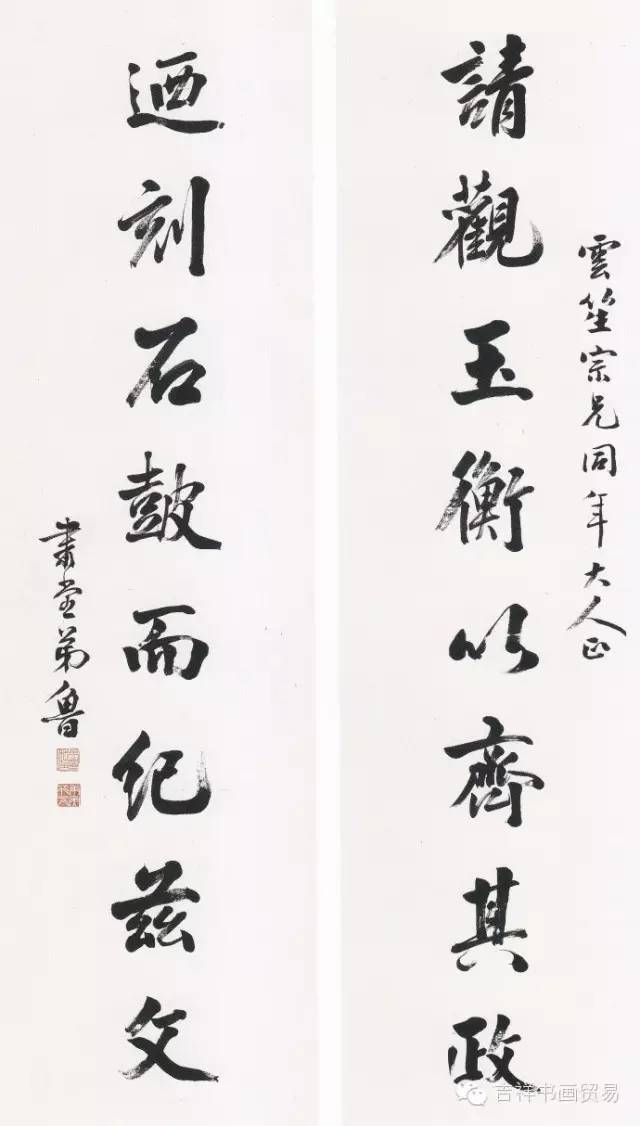 雲笙宗兄同年大人正
請觀玉衡以齊其政
迺刻石鼓而紀茲文
肅堂弟魯
吉祥书画贸易